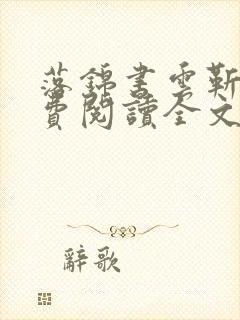 落錦書雲靳
費閱讀全文
辭歌